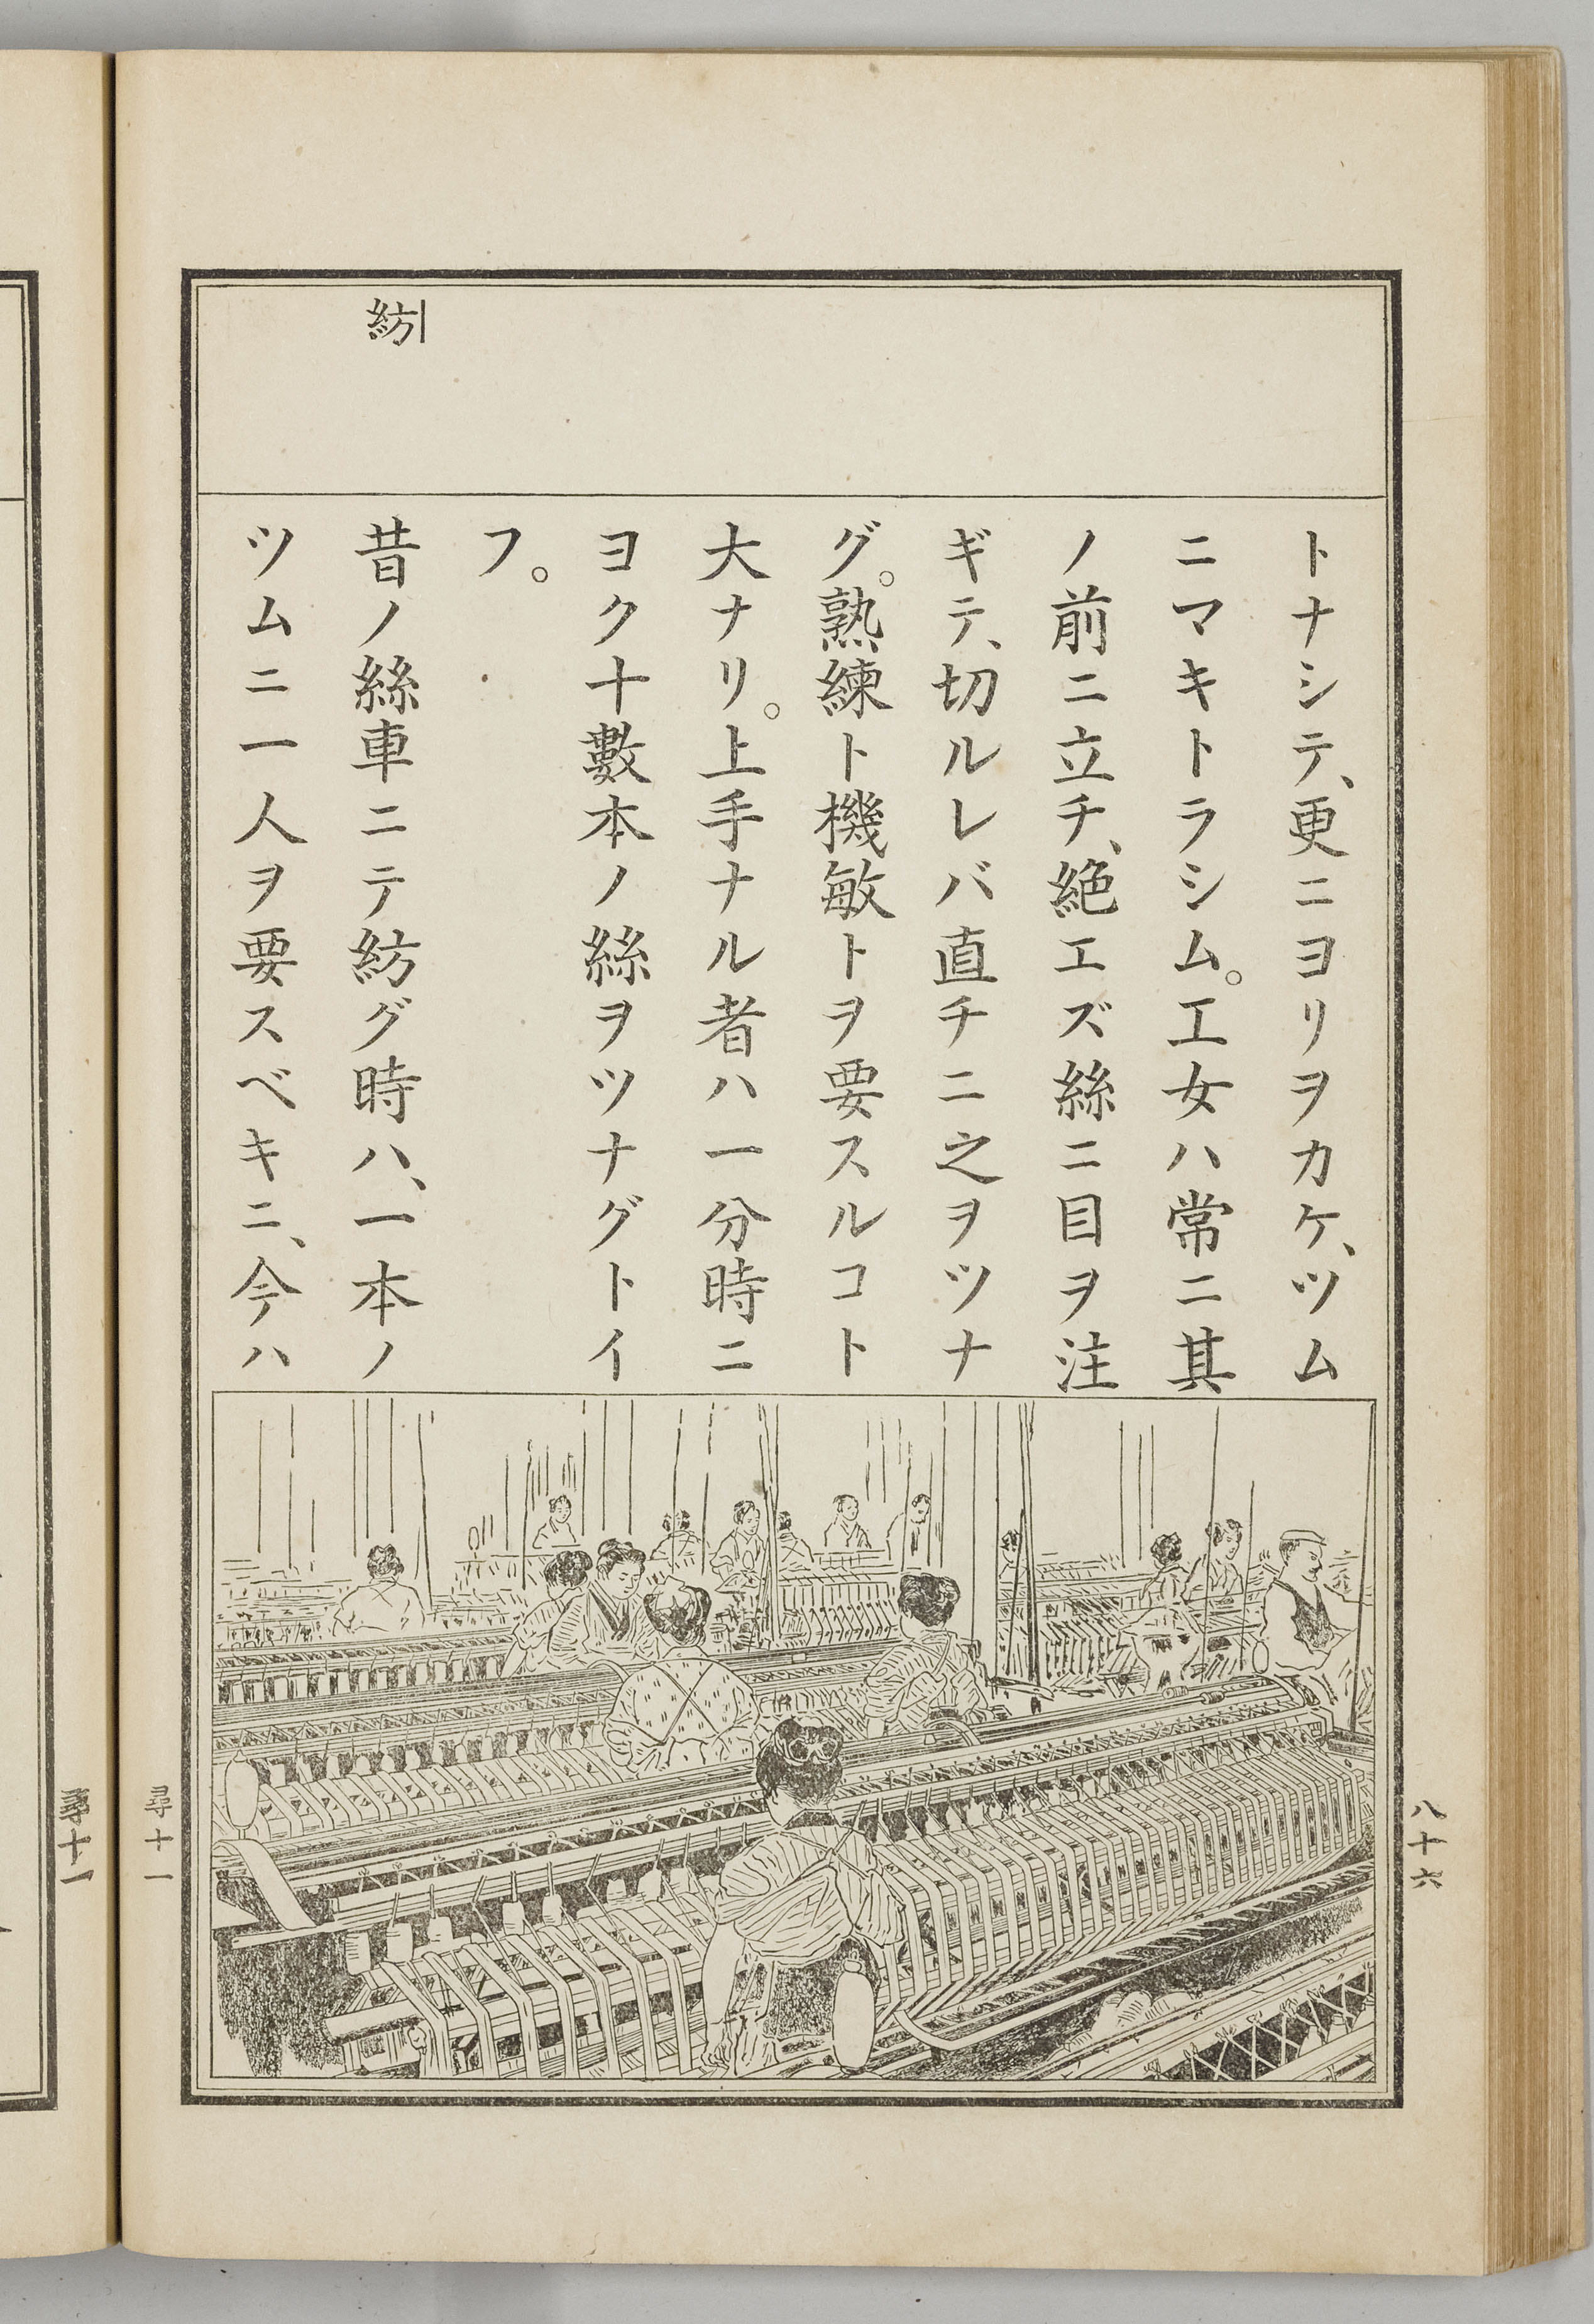 紡
トナシテ、更ニヨリヲカケ、ツム
ニマキトラシム。工女ハ常ニ其
ノ前ニ立チ、絶エズ絲ニ目ヲ注
ギテ、切ルレバ直チニ之ヲツナ
グ。熟練ト機敏トヲ要スルコト
大ナリ。上手ナル者ハ一分時ニ
ヨク十數本ノ絲ヲツナグトイ
フ。
昔ノ絲車ニテ紡グ時ハ、一本ノ
ツムニ一人ヲ要スベキニ、今ハ
八十六
尋十一
尋十一